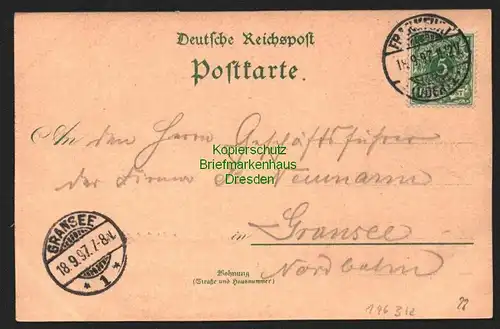 Deutsche Reichspost
Postkarte.
FRANKFURT
18.9.97
(ODER)
5
An den Herrn Geschäftsführer
Kopierschutz
Briefmarkenhaus
Dresden
der Firma Neumann
in Gransee
Nordbahn
GRANSEE
18.9.97.7-8N.
* 1 *
Wohnung
(Straße und Hausnummer)